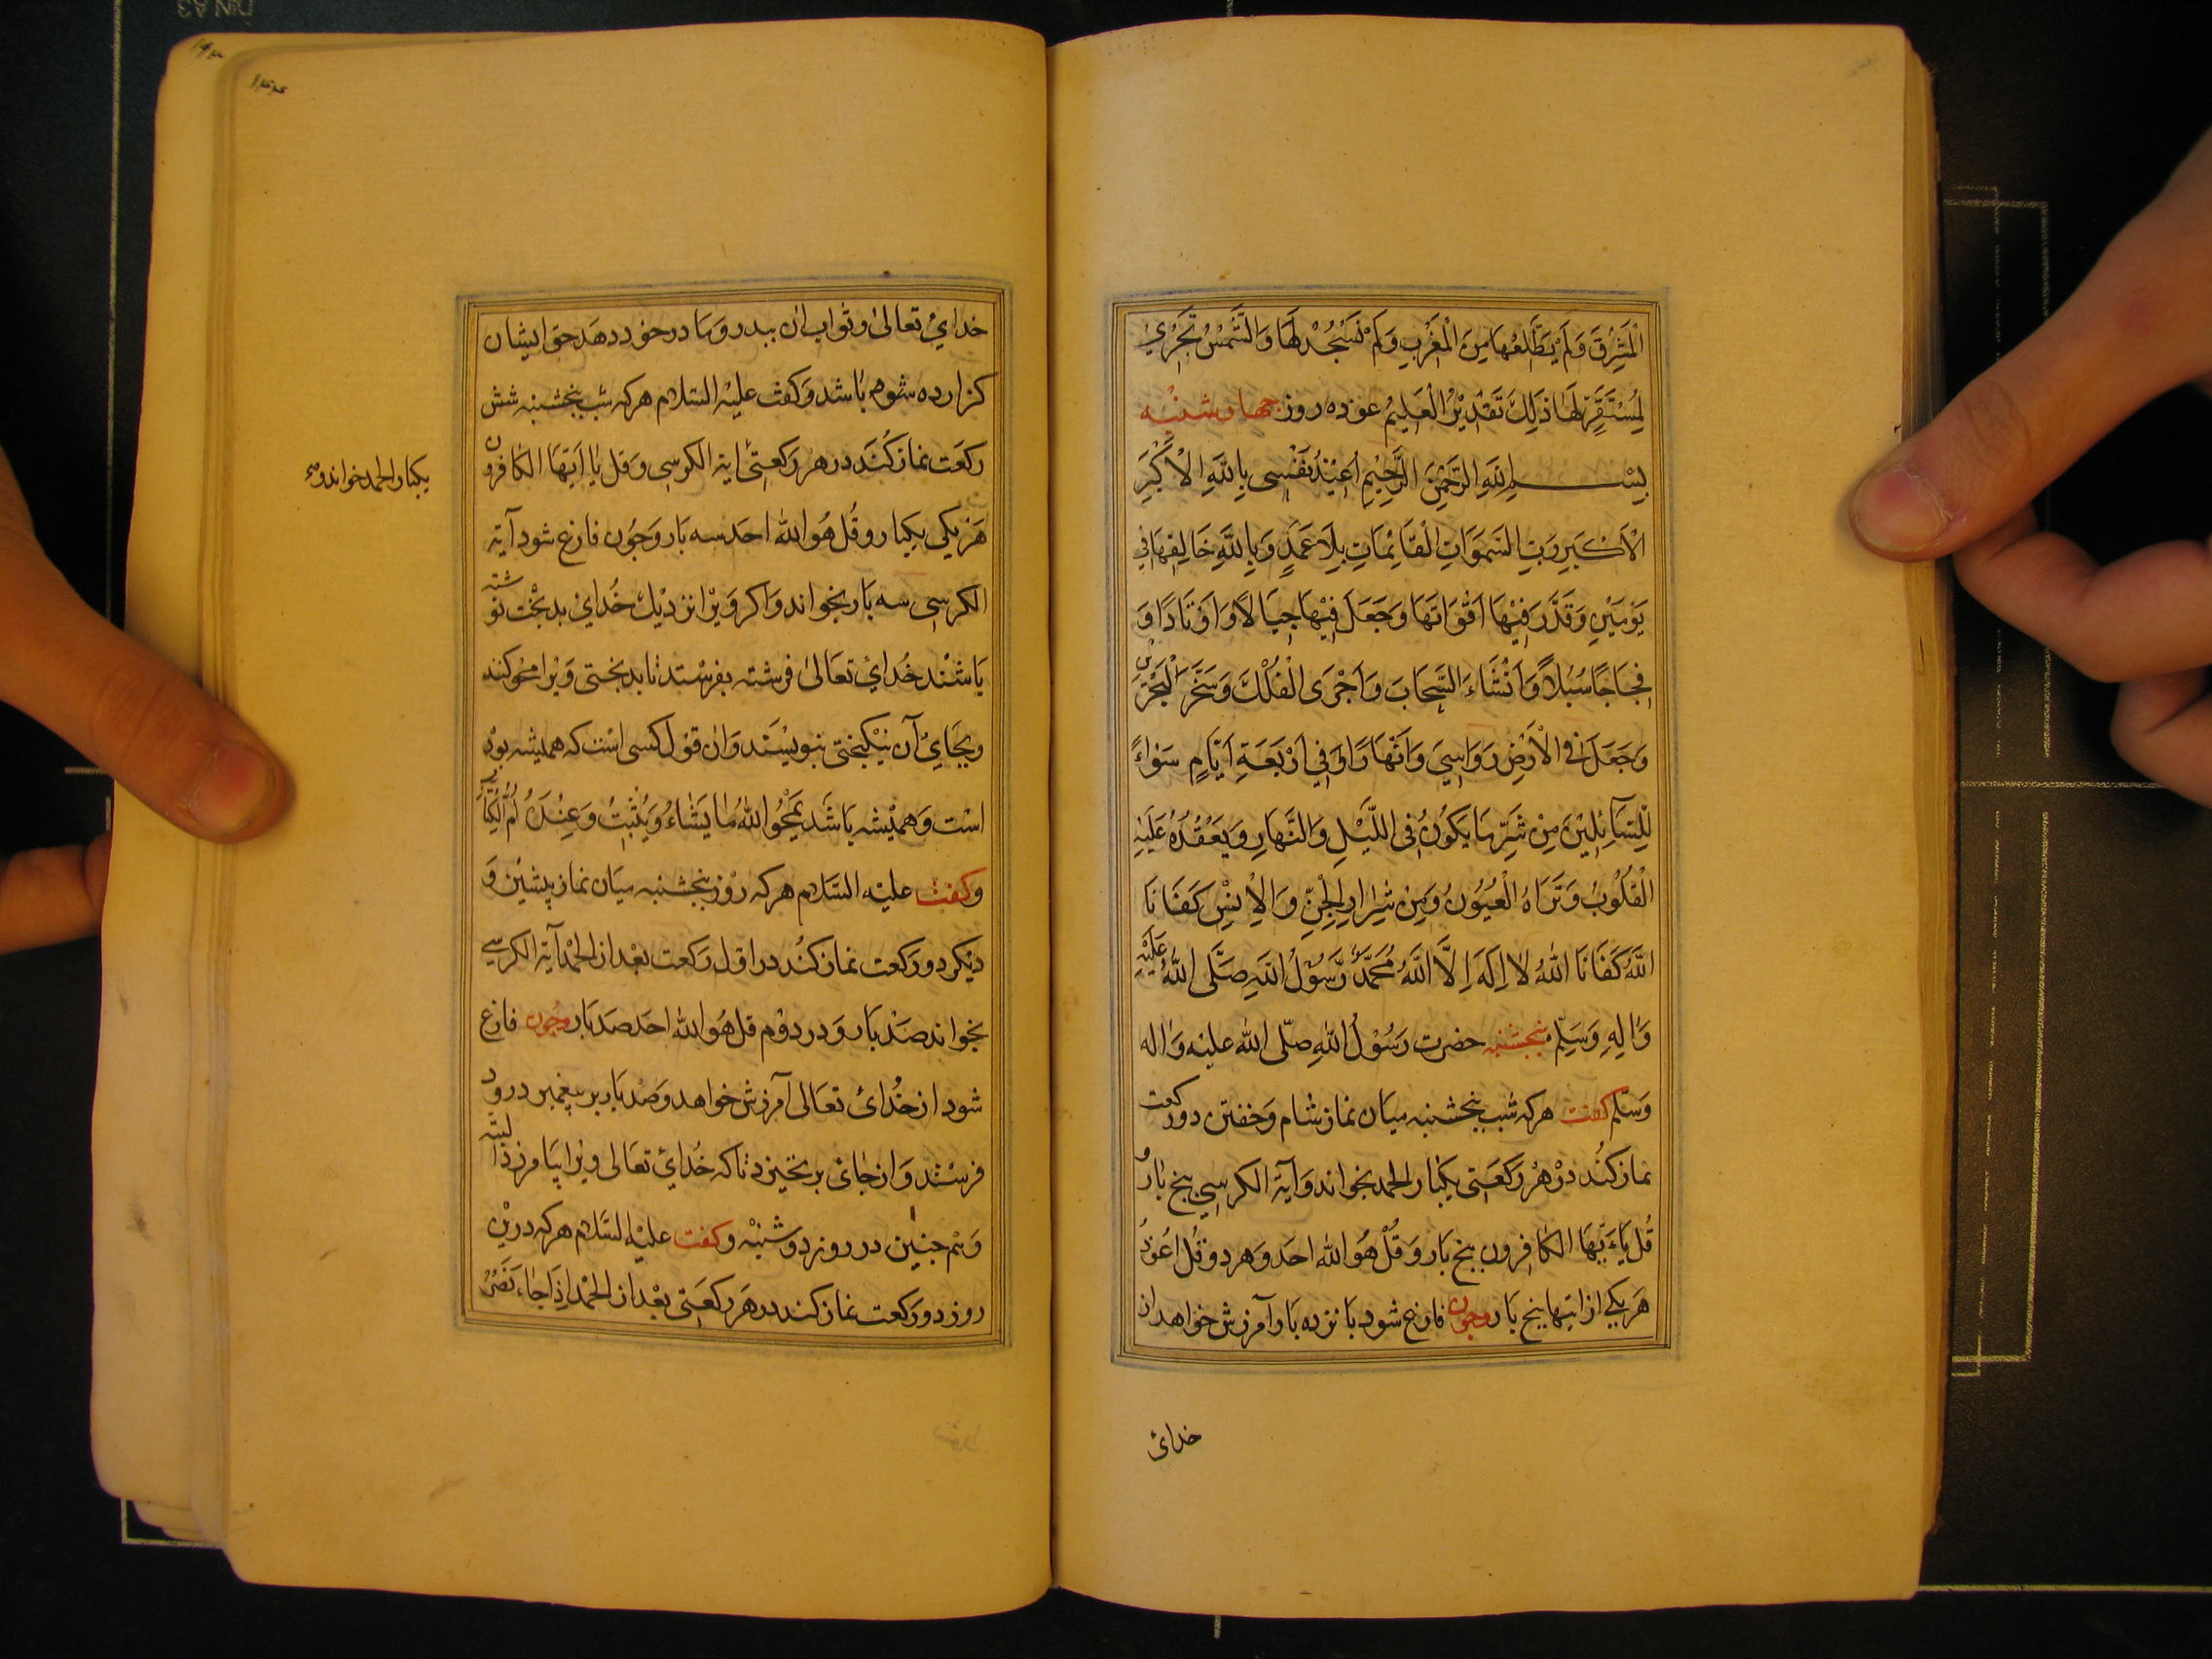 الْمَشْرِقَ وَلَمْ يَطَّلِعْهَا مِنَ الْمَغْرِبِ وَلَمْ نَسْجُدْ لَهَا وَالشَّمْسُ تَجْرِيْ
لِمُسْتَقَرٍّ لَهَا ذٰلِكَ تَقْدِيْرُ الْعَلِيْمُ عوذه روز چهارشنبه
بِسْمِ اللّٰهِ الرَّحْمٰنِ الرَّحِيْمِ اُعِيْذُ نَفْسِى بِاللّٰهِ الْاَكْبَرِ
الْاَكْبَرِ وَرَبِّ السَّمٰوَاتِ الْقَائِمَاتِ بِلَا عَمَدٍ وَبِاللّٰهِ خَالِقِهَا فِي
يَوْمَيْنِ وَقَدَّرَ فِيْهَا اَقْوَاتَهَا وَجَعَلَ فِيْهَا جِبَالًا وَاَوْتَادًا وَ
فِجَاجًا سُبُلًا وَاَنْشَاءَ السَّحَابَ وَاَجْرَى الْفُلْكَ وَسَخَّرَ الْبَحْرَيْنِ
وَجَعَلَ فِي الْاَرْضِ رَوَاسِيَ وَاَنْهَارًا وَفِي اَرْبَعَةِ اَيَّامٍ سَوَاءً
لِلسَّائِلِيْنَ مِنْ شَرِّ مَا يَكُوْنُ فِى اللَّيْلِ وَالنَّهَارِ وَيَعْقُدُهُ عَلَيْهِ
الْقُلُوْبُ وَتَرَاهُ الْعُيُوْنُ وَمِنْ شِرَارِ الْجِنِّ وَالْاِنْسِ كَفَانَا
اللّٰهُ كَفَانَا اللّٰهُ لَا اِلٰهَ اِلَّا اللّٰهُ مُحَمَّدٌ رَّسُوْلُ اللّٰهِ صَلَّى اللّٰهُ عَلَيْهِ
وَاٰلِهِ وَسَلِّمْ پنجشنبه حضرت رَسُوْلُ اللّٰهِ صلّى اللّٰه عليه وَاله
وَسَلّم كفت هركه شب پنجشنبه ميان نماز شام وَخفتن دو ركعت
نماز كُند دَرْ هَرْ رَكعَتى يكبار الحمد بخواند وَآية الكرسي پنج بار و
قُل يَاءَيُّهَا الكافِرون پنج بار وَقُلْ هُوَ اللّٰه احَد وَهردو قُل اَعُوْذُ
هَر يكے از اينها پنج بَار وچون فارغ شود پانزده بَار آمرزش خواهد از
خدائ
۱۴۴
خدايْ تعالىٰ وثواب ان بپدر وَمادر خود دهَد حق ايشان
كزارده شوده بَاشد وَكفت عليهْ السّلام هركه شب پنجشنبه شش
ركعَت نماز كُنَد در هر رَكعتىْ اية الكرسى وَقل يٰا اَيّهَا الكافرون
هَر يكى يكبار و قُل هُوَ اللّٰه احَد سه بَار وَچُون فارغ شود آية
الكرسى سه بَار بخواند وَاكر وَيْرا نزدْيك خُداىْ بدبخْت نوشته
بَاشنْد خُدايْ تعَالىٰ فرشته بفرسْتد تا بدبختى وَيْرا محْو كنند
وبجَايْ آن نيْكبختى بنويسْند وَان قوْل كسى است كه هميشه بوْده
اسْت وَهميْشه بَاشَد يَمْحُوا اللّٰهُ مَا يَشَاءُ وَيُثْبِتُ وَعِنْدَهُ اُمُّ الْكِتَابِ
وكفت عليْه السّلام هركه روْز پنجشنبه ميَان نماز پيشيْن وَ
ديْكر دو رَكعت نماز كنُد در اوّل رَكعت بعْد از الحَمْد آية الكرسے
بخواند صَدْ بَار وَدر دوُم قل هُوَ اللّٰه احَد صَد بَار وچون فارغ
شود از خُدائ تعَالى آمرزش خواهد وَصَدْ بَار بر پيغمبر درود
فرسْتد وَاز جَائ برنخيزد تا كه خُدائ تعَالى ويْرا بيَامرزد البتّه
وَهم چنيْن در روز دوشنبْه وكفت عليْه السّلام هركه دريْن
روز دو رَكعت نماز كند در هَر ركعَتى بعْد از الحَمْد اِذَا جَاءَ نَصْرُ
يكبار الحمد خواند و